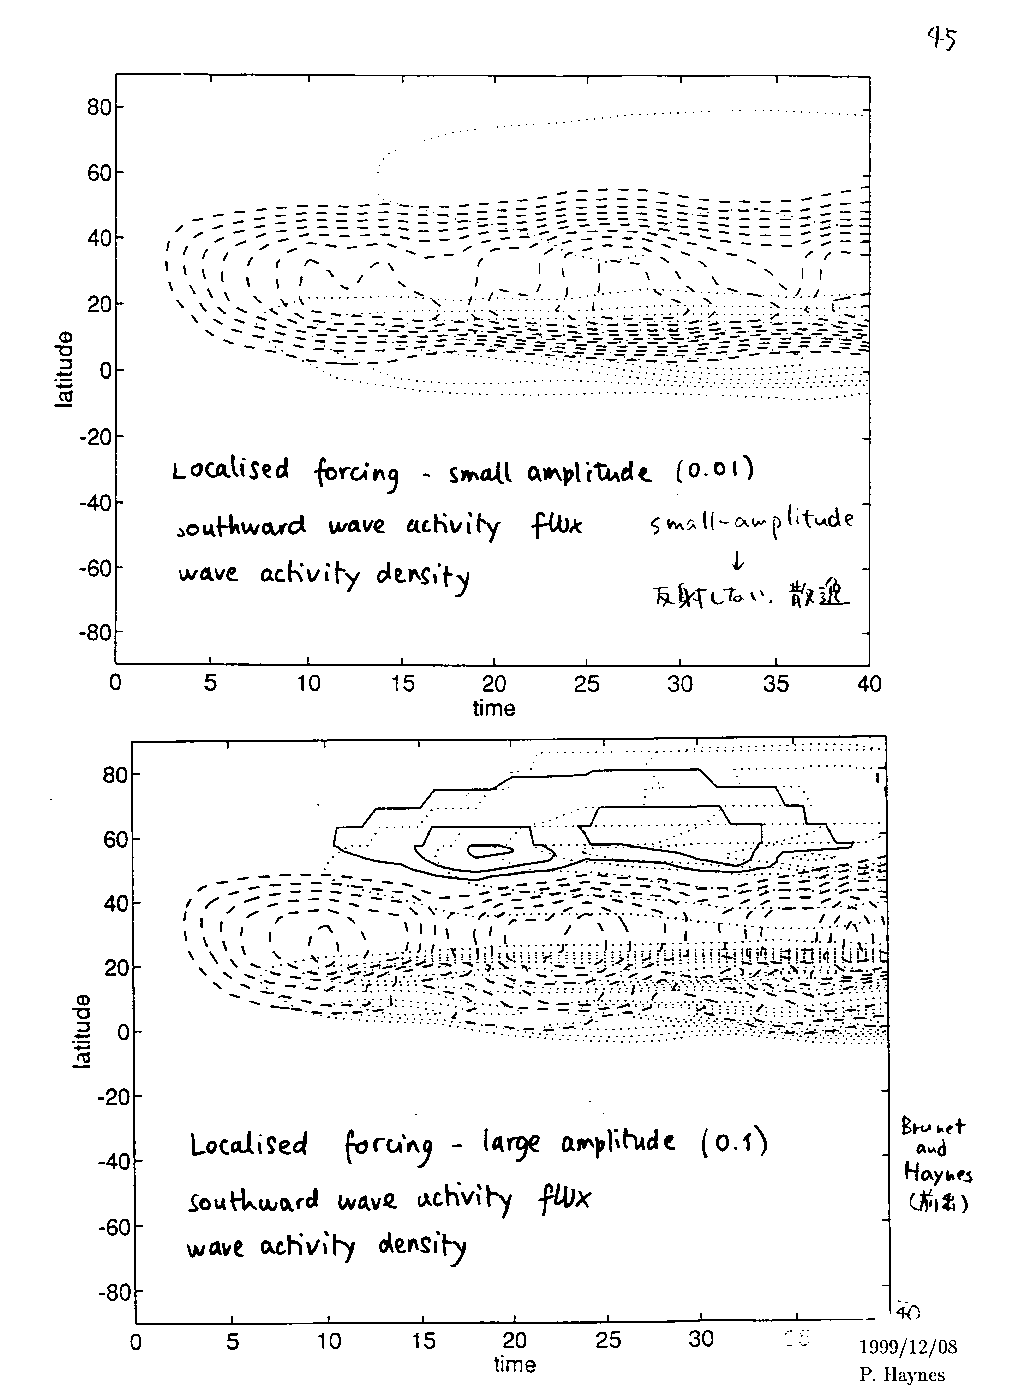 45
80
60
40
20
0
-20
-40
-60
-80
latitude
Localised forcing - small amplitude (0.01)
southward wave activity flux
wave activity density
small-amplitude
↓
反射しない. 散逸
0 5 10 15 20 25 30 35 40
time
80
60
40
20
0
-20
-40
-60
-80
latitude
Localised forcing - large amplitude (0.1)
southward wave activity flux
wave activity density
Brunet
and
Haynes
(前出)
0 5 10 15 20 25 30 35 40
time
1999/12/08
P. Haynes